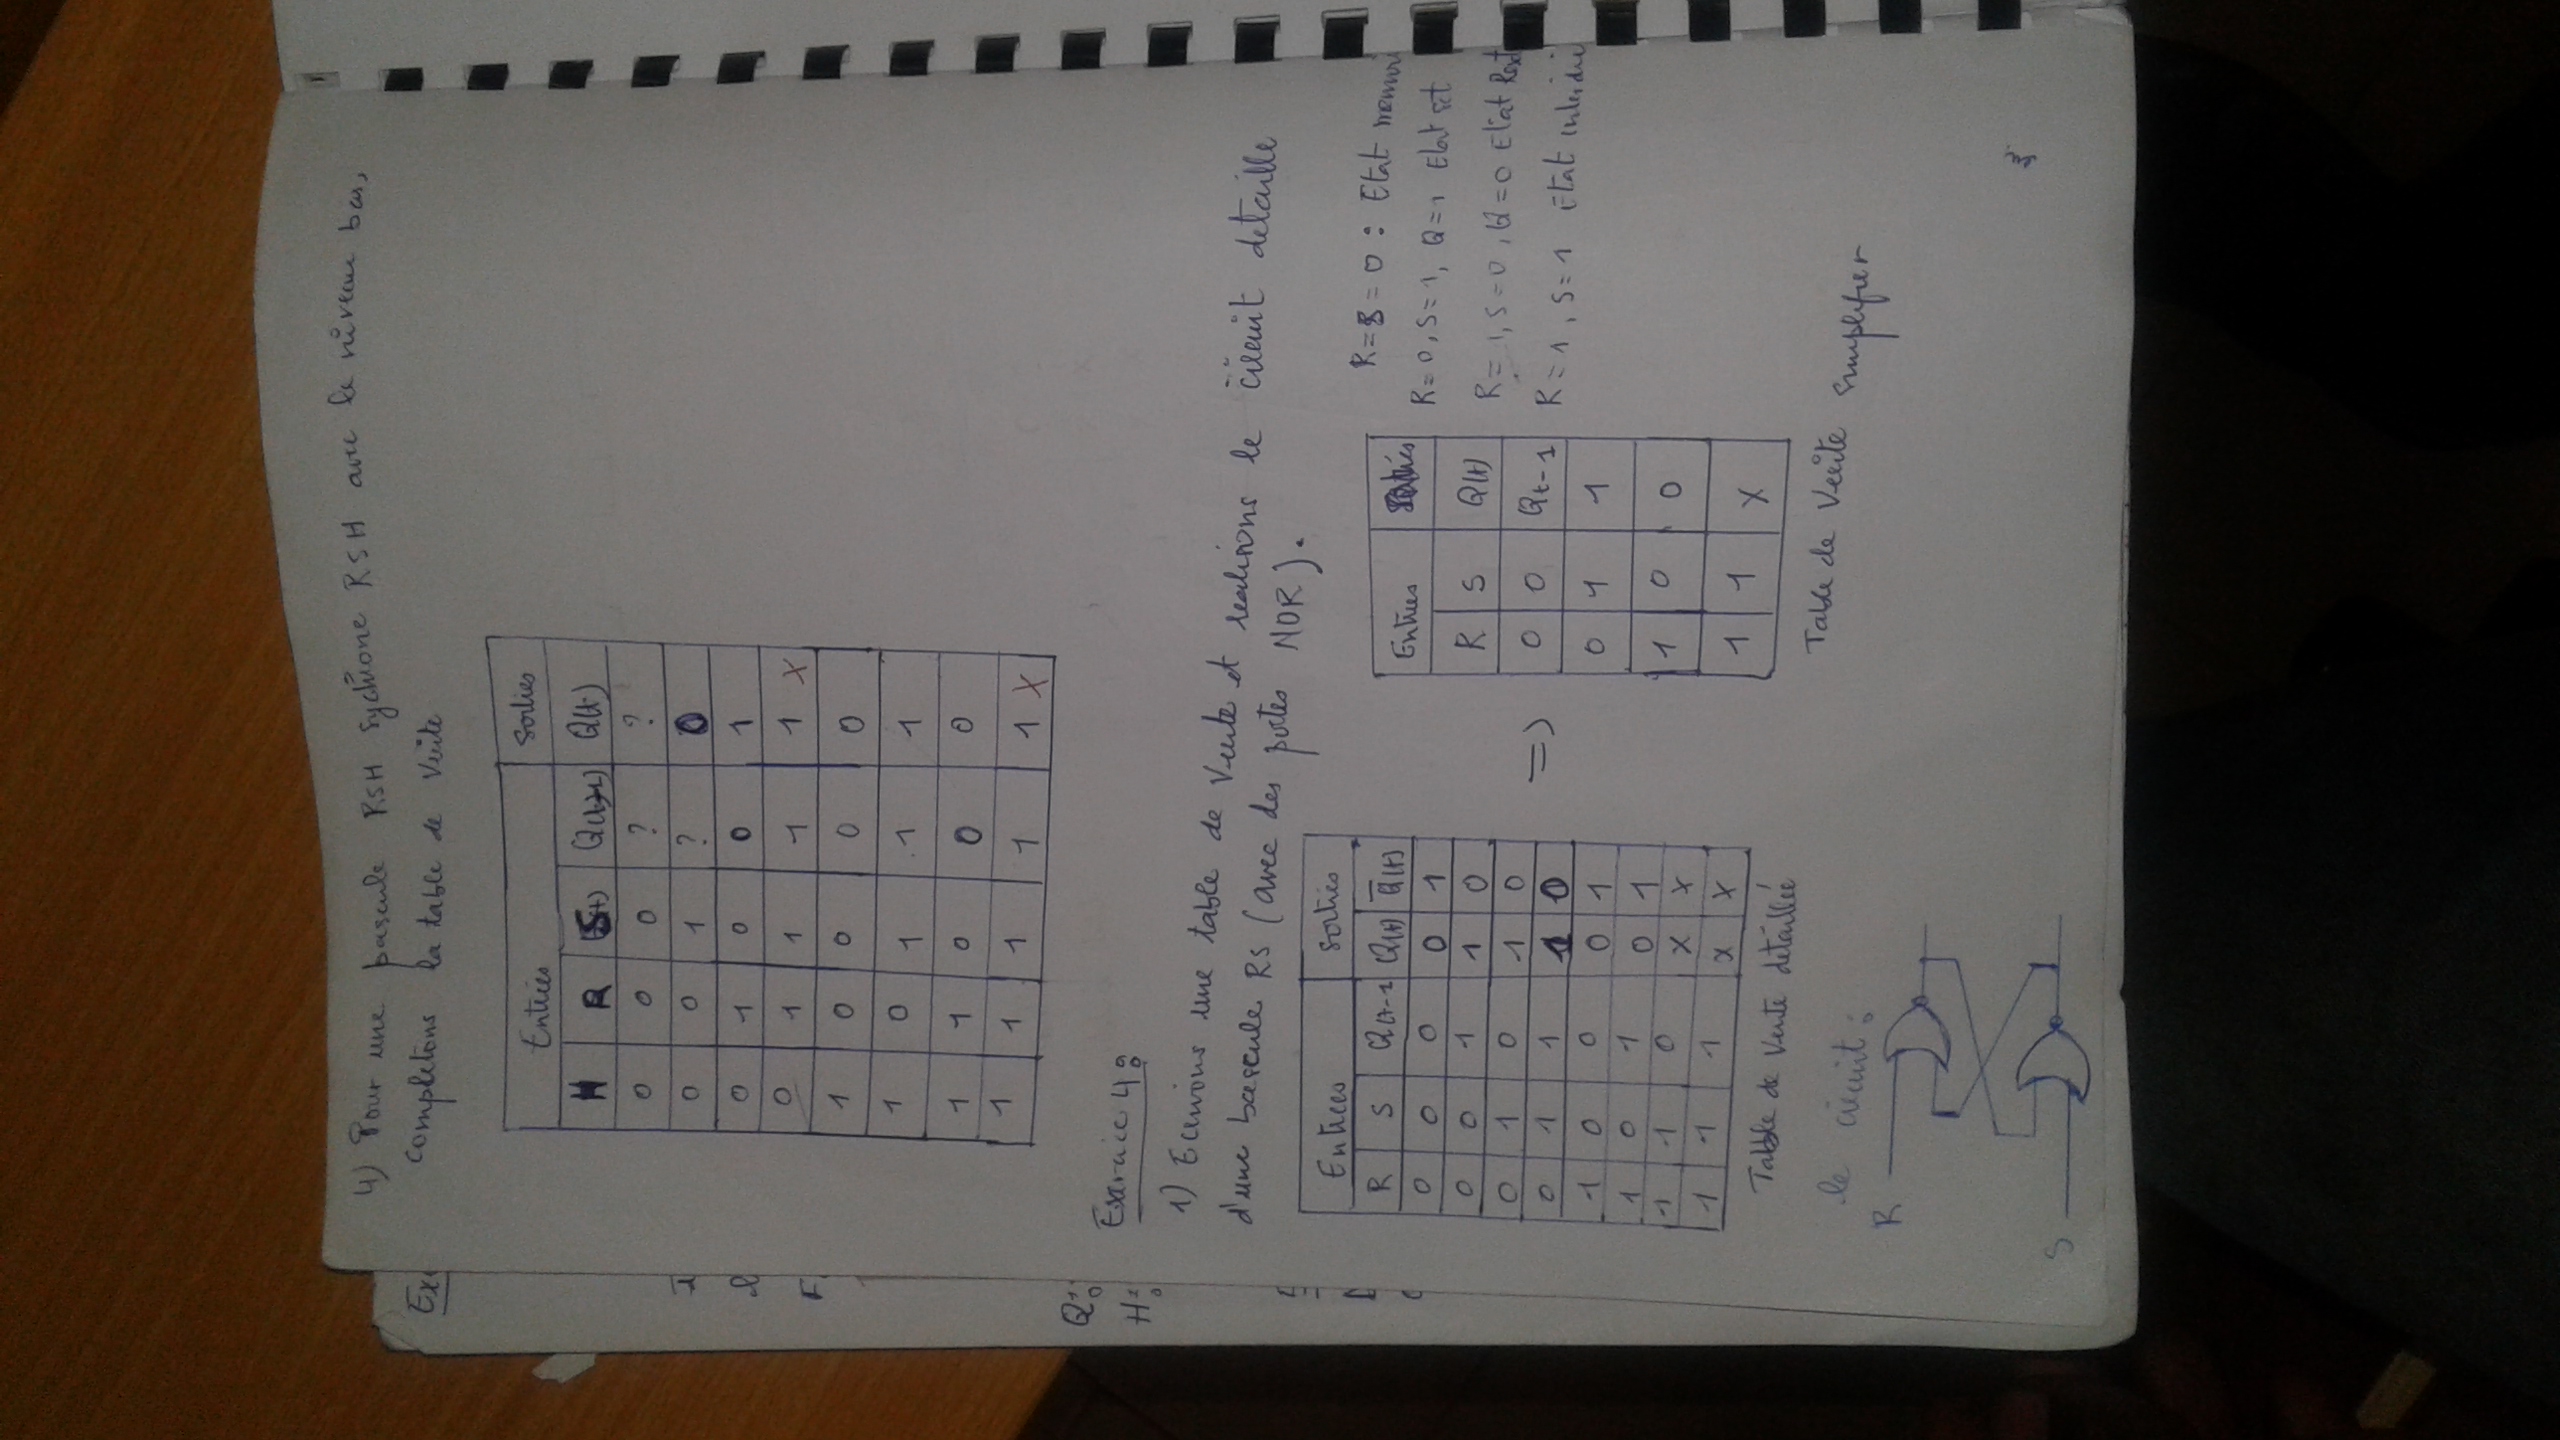 4) Pour une pascule RSH sychrone RSH avec le niveau bas,
completons la table de Verite
Entrées Sorties
H R S(t) Q(t-1) Q(t)
0 0 0 ? ?
0 0 1 ? 0
0 1 0 0 1
0 1 1 1 1 X
1 0 0 0 0
1 0 1 1 1
1 1 0 0 0
1 1 1 1 1 X
Exercice 4:
1) Ecrivons une table de Verite et realisons le circuit detaille
d'une bascule RS (avec des portes NOR).
Entrees Sorties
R S Q(t-1 Q(t) Q̅(t)
0 0 0 0 1
0 0 1 1 0
0 1 0 1 0
0 1 1 1 0
1 0 0 0 1
1 0 1 0 1
1 1 0 x x
1 1 1 x x
Table de Verite detaillée
=>
Entrees Sorties
R S Q(t)
0 0 Qt-1
0 1 1
1 0 0
1 1 X
Table de Verite simplifier
R=S=0 : Etat memori
R=0, S=1, Q=1 Etat set
R=1, S=0, Q=0 Etat Reset
R=1, S=1 Etat interdi
le circuit:
R
S
Ex
Q
H